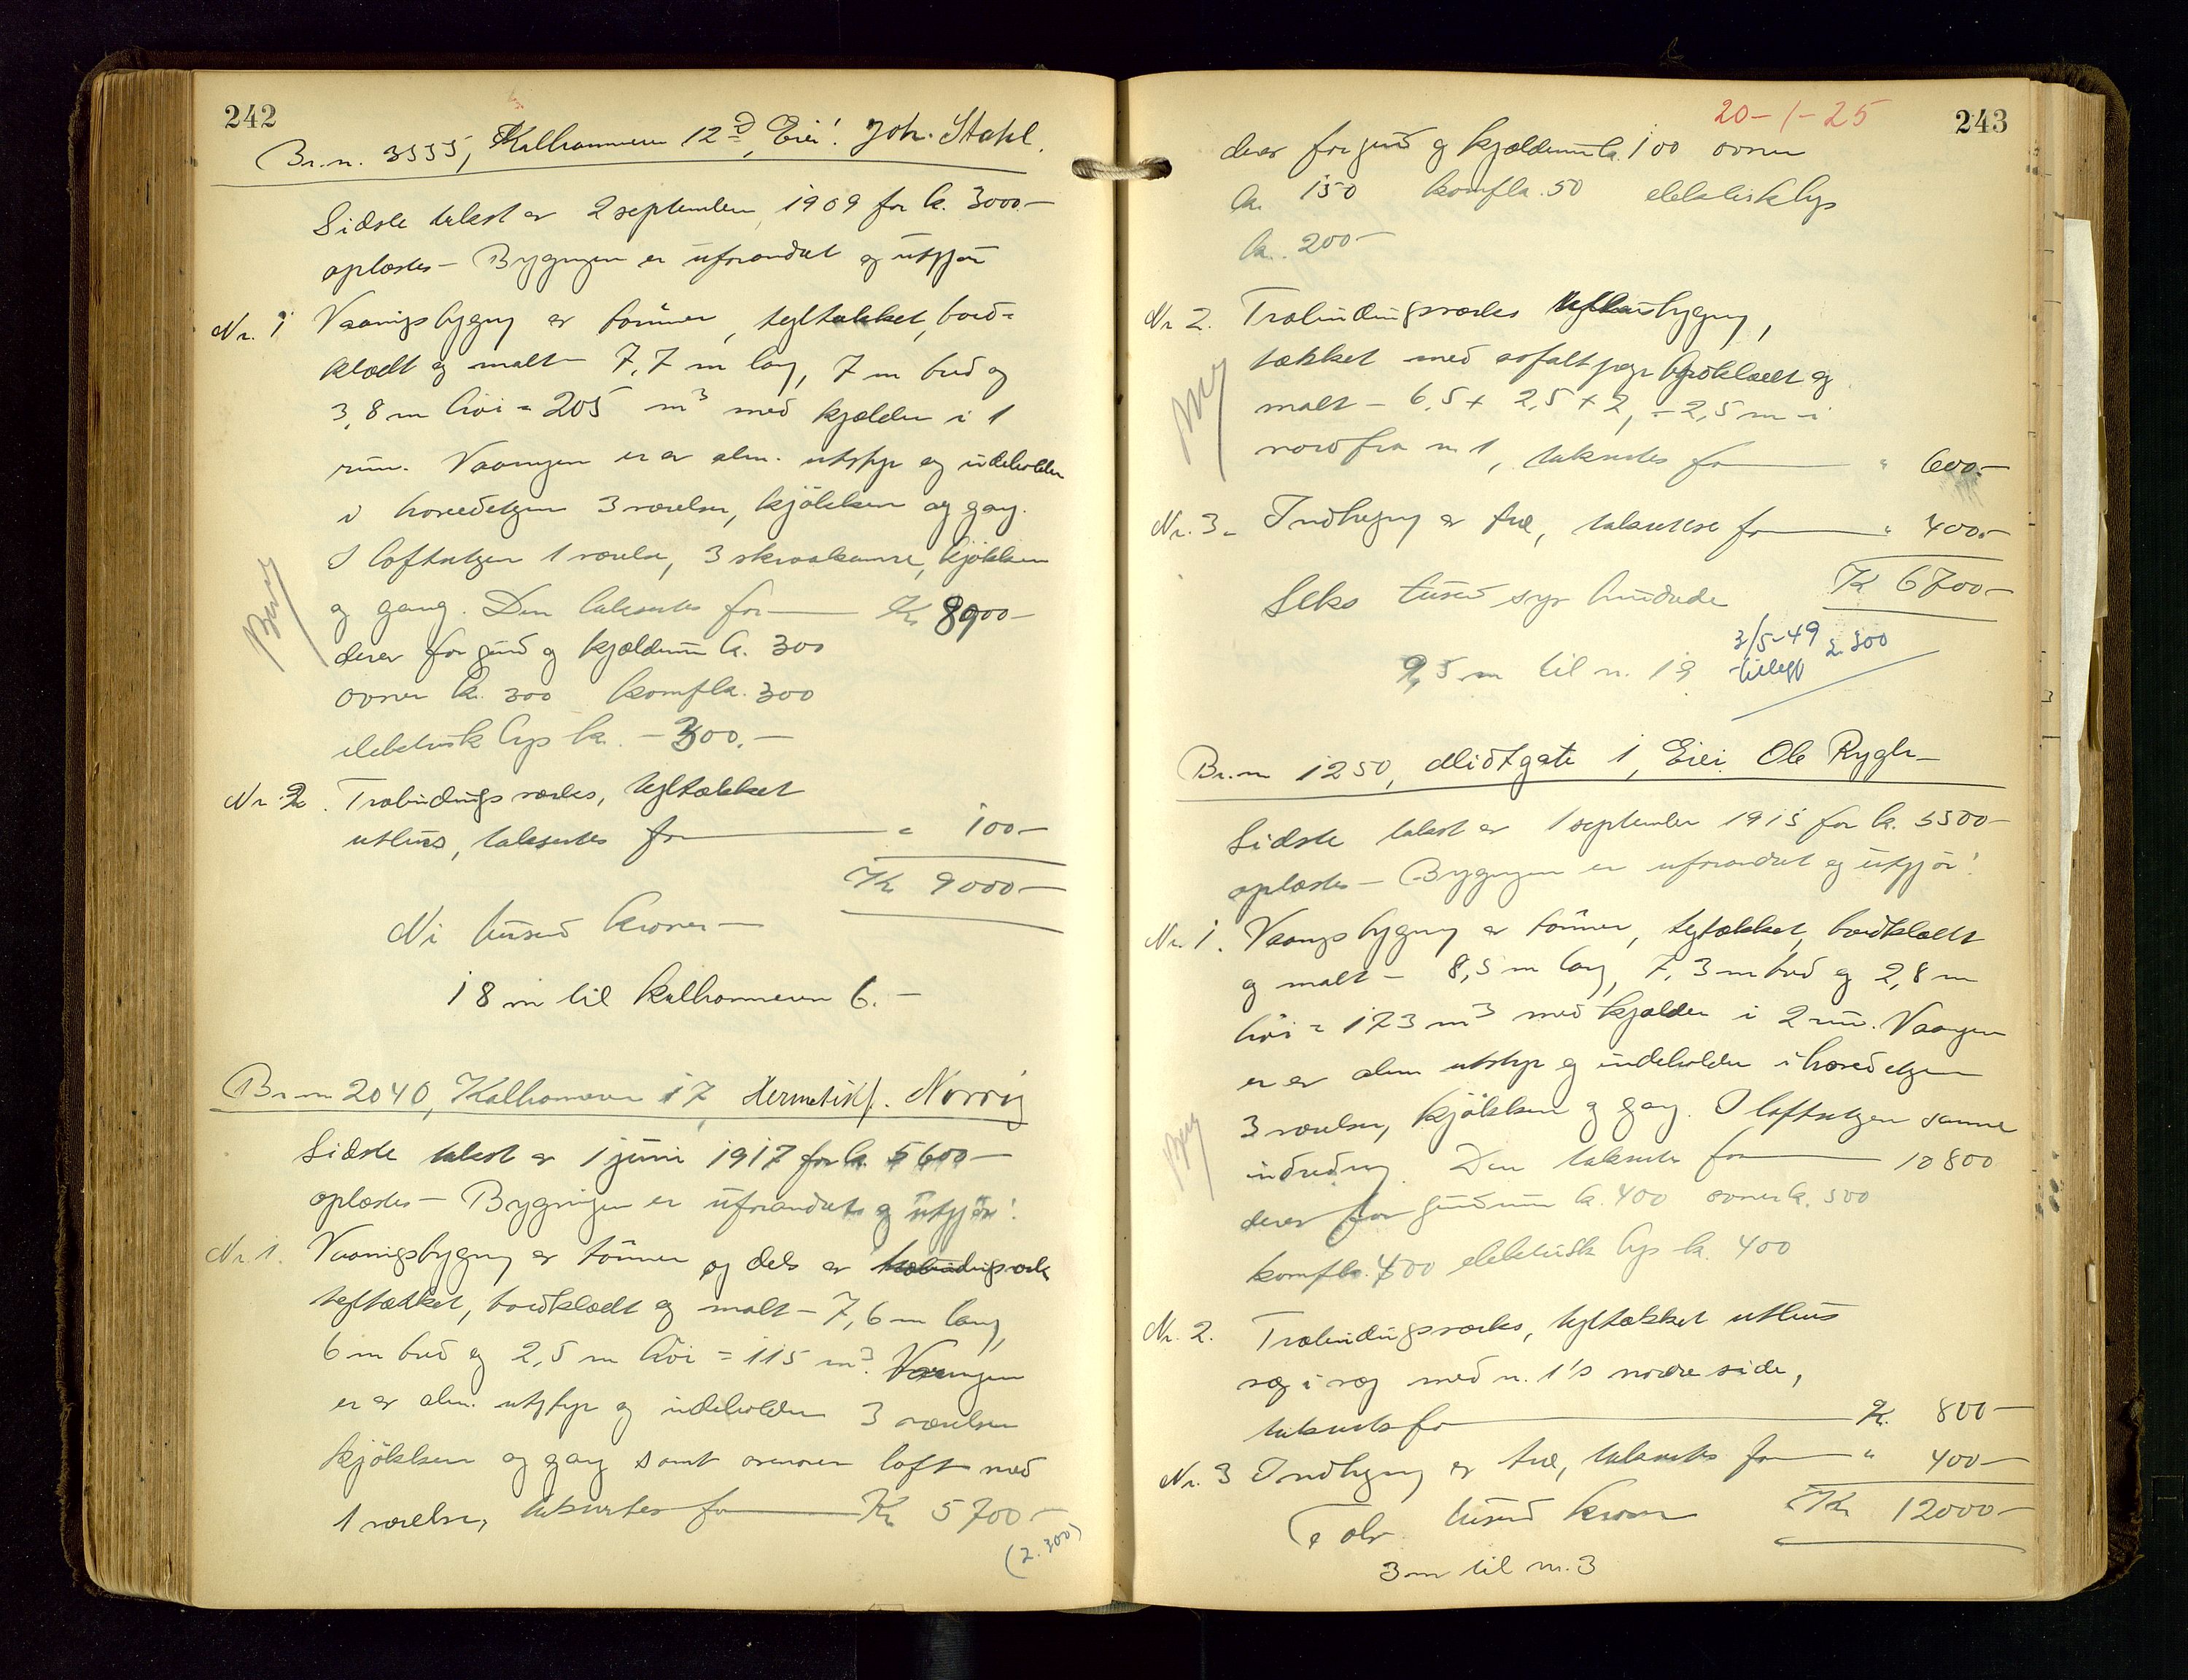 242
Br.n. 3535, Kalhammeren 12D, Eier: Joh. Stahl.
Sidste takst av 2 september 1909 for kr. 3000.-
oplæstes - Bygningen er uforandret og utgjør
Nr. 1 Vaaningsbygning av tømmer, tegltækket, bord=
klædt og malt - 7,7 m lang, 7 m bred og
3,8 m høi = 205 m3 med kjelder i 1
rum. Vaaningen er av alm. utstyr og indeholder
i hovedetagen 3 værelser, kjøkken og gang.
I loftsetagen 1 værelse, 3 skraakamre, kjøkken
og gang. Den takseres for — Kr 8900-
derav for grund og kjældermur kr. 300
ovner kr. 300 komfkr. 300
elektrisk lys kr. - 300.-
Nr. 2. Træbindingsverks, tegltækket
uthus, takseres for — " 100-
Kr 9000-
Ni tusend kroner -
18 m til Kalhammeren 6. -
Br.n 2040, Kalhammeren 17, Hermetikf. Norrig
Sidste takst av 1 juni 1917 for kr. 5600-
oplæstes - Bygningen er uforandret og utgjør:
Nr. 1. Vaaningsbygning av tømmer og dels av træbindingsverk
tegltækket, bordklædt og malt - 7,6 m lang,
6 m bred og 2,5 m høi = 115 m3. Vaaningen
er av alm. utstyr og indeholder 3 værelser
kjøkken og gang samt ovenover loft med
1 værelse, takseres for — Kr 5700-
(2.300)
20-1-25
243
derav for grund og kjældermur kr. 100 ovner
kr. 150 komfkr. 50 elektrisk lys
kr. 200-
Nr 2. Træbindingsverks uthusbygning,
tækket med asfaltpap bordklædt og
malt - 6,5 x 2,5 x 2, - 2,5 m i
nord fra nr 1, takseres for — " 600.-
Nr. 3. Indhegning av træ, takseres for — " 400.-
Kr 6700-
Seks tusend syv hundrede
3/5-49 2.300
tillegg
9,5 m til n. 19
Br.n 1250, Midtgate 1, Eier Ole Rygh-
Sidste takst av 1 september 1915 for kr. 5500-
oplæstes - Bygningen er uforandret og utgjør:
Nr. 1. Vaaningsbygning av tømmer, tegltækket, bordklædt
og malt - 8,5 m lang, 7,3 m bred og 2,8 m
høi = 173 m3 med kjelder i 2 rum. Vaaningen
er av alm utstyr og indeholder i hovedetagen
3 værelser, kjøkken og gang. I loftsetagen samme
indredning. Den takseres for — 10800
derav for grundmur kr. 400 ovner kr. 500
komfkr. 400 elektrisk lys kr. 400
Nr. 2. Træbindingsverks, tegltækket uthus
væg i væg med n. 1's nordre side,
takseres for — Kr. 800-
Nr. 3 Indhegning av træ, takseres for — " 400-
Kr 12000-
Tolv tusend kroner
3 m til nr. 3